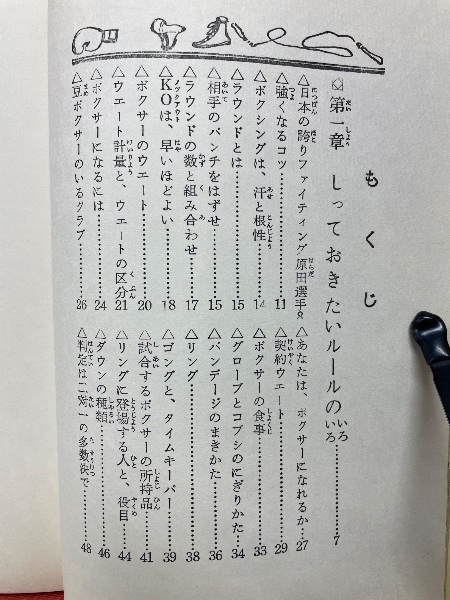 もくじ
第一章 しっておきたいルールのいろいろ………7
△日本の誇りファイティング原田選手…8
△強くなるコツ………11
△ボクシングは、汗と根性………14
△ラウンドとは………15
△相手のパンチをはずせ………15
△ラウンドの数と組み合わせ………17
△KOは、早いほどよい………18
△ボクサーのウエート………20
△ウエート計量と、ウエートの区分…21
△ボクサーになるには………24
△豆ボクサーのいるクラブ………26
△あなたは、ボクサーになれるか…27
△契約ウエート………29
△ボクサーの食事………33
△グローブとコブシのにぎりかた……34
△バンデージのまきかた………36
△リング………38
△ゴングと、タイムキーパー………39
△試合するボクサーの所持品………41
△リングに登場する人と、役目………44
△ダウンの種類………46
△判定は二対一の多数決で………48